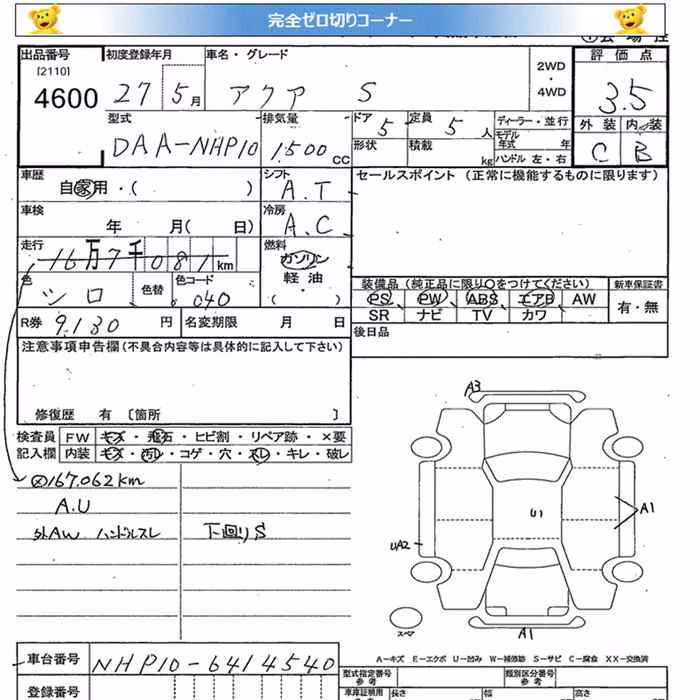 完全ゼロ切りコーナー
出品番号 初度登録年月 車名・グレード 評価点
[2110]
4600 27 5月 アクア S 2WD・4WD 3.5
型式 排気量 ドア 5 定員 5人 ディーラー・並行 外装 内装
DAA-NHP10 1,500cc 形状 積載 kg モデル年式 年 C B
ハンドル 左・右
車歴 シフト セールスポイント (正常に機能するものに限ります)
自家用・( ) A.T
車検 冷房
年 月( 日) A.C
走行 燃料
16万7千081km ガソリン
軽油
・
( )
色 色替 色コード 装備品 (純正品に限り○をつけてください) 新車保証書
シロ 040 PS PW ABS エアB AW 有・無
SR ナビ TV カワ
R券 9,130円 名変期限 月 日 後日品
注意事項申告欄(不具合内容等は具体的に記入して下さい)
修復歴 有 〔箇所 〕
検査員 FW キズ・飛石・ヒビ割・リペア跡・×要
記入欄 内装 キズ・汚レ・コゲ・穴・スレ・キレ・破レ
167.062km
A.U
外AW ハンドルスレ 下回りS
A3
U1
A1
UA2
A1
スペア
A-キズ E-エクボ U-凹み W-補修跡 S-サビ C-腐食 XX-交換済
車台番号 NHP10-6414540
登録番号
型式指定番号 参考 類別区分番号 参考
車庫証明用 長さ 幅 高さ